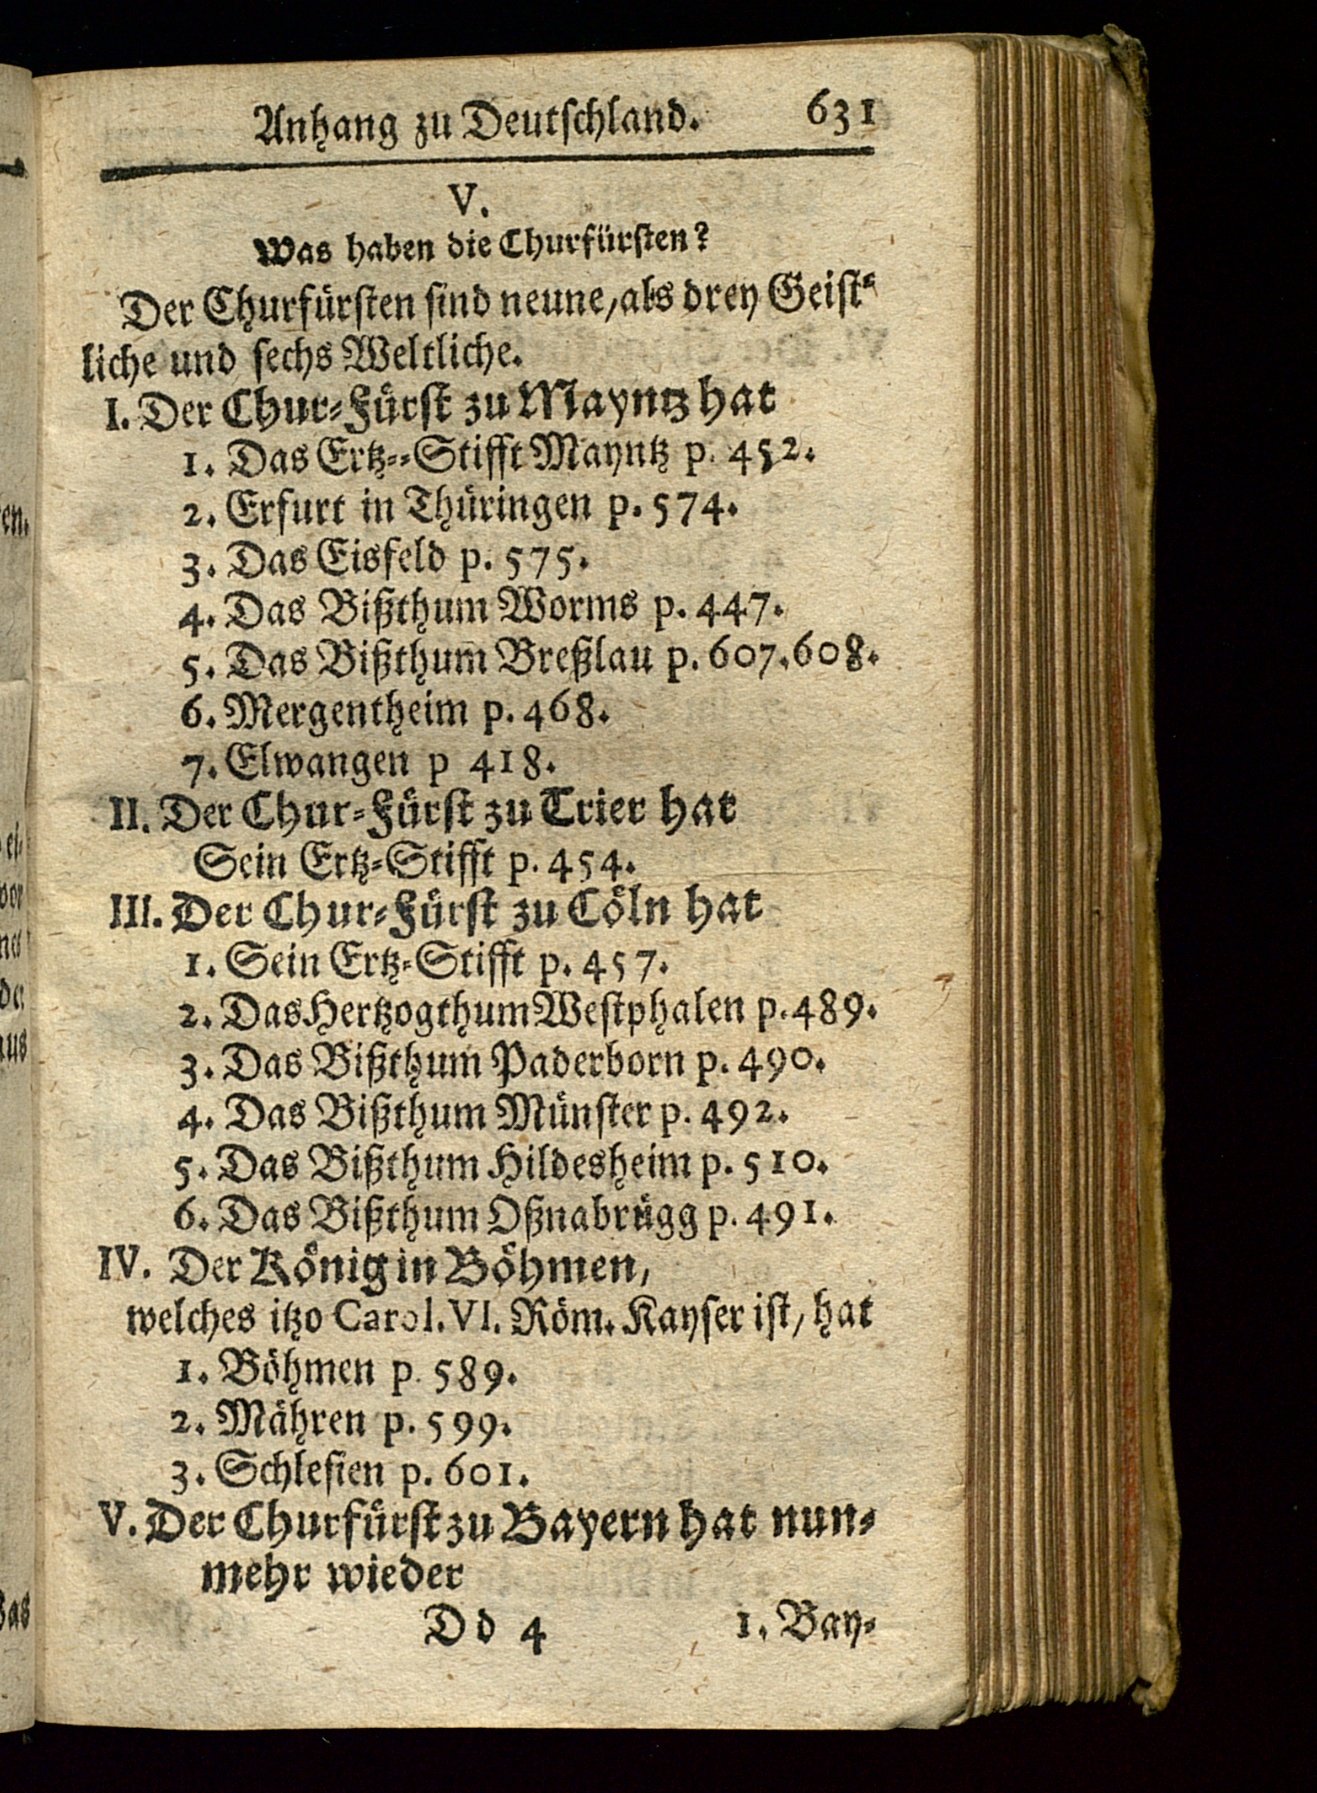 Anhang zu Deutschland. 631
V.
Was haben die Churfürsten?
Der Churfürsten sind neune, als drey Geist-
liche und sechs Weltliche.
I. Der Chur-Fürst zu Mayntz hat
1. Das Ertz--Stifft Mayntz p. 452.
2. Erfurt in Thüringen p. 574.
3. Das Eisfeld p. 575.
4. Das Bißthum Worms p. 447.
5. Das Bißthum Breßlau p. 607. 608.
6. Mergentheim p. 468.
7. Elwangen p 418.
II. Der Chur-Fürst zu Trier hat
Sein Ertz-Stifft p. 454.
III. Der Chur-Fürst zu Cöln hat
1. Sein Ertz-Stifft p. 457.
2. Das Hertzogthum Westphalen p. 489.
3. Das Bißthum Paderborn p. 490.
4. Das Bißthum Münster p. 492.
5. Das Bißthum Hildesheim p. 510.
6. Das Bißthum Oßnabrügg p. 491.
IV. Der König in Böhmen,
welches itzo Carol. VI. Röm. Kayser ist, hat
1. Böhmen p. 589.
2. Mähren p. 599.
3. Schlesien p. 601.
V. Der Churfürst zu Bayern hat nun-
mehr wieder
Dd 4 1. Bay-